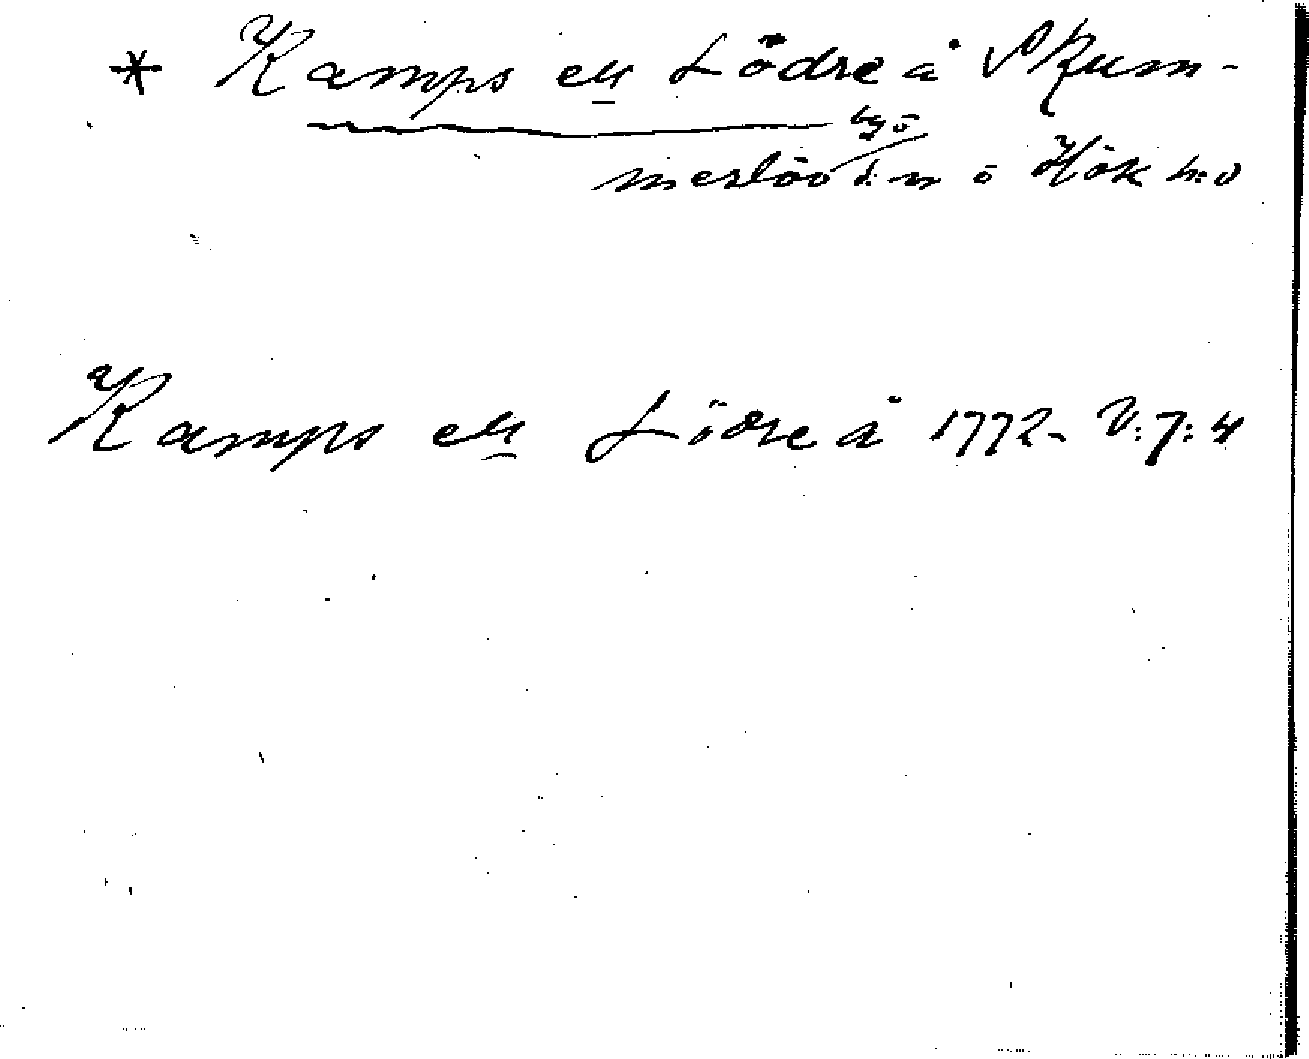 * Kamps ell Lödre å Skum-
by ö
merlöv s:n ö Hök h:d
Kamps ell Lödre å 1772- V:7:4